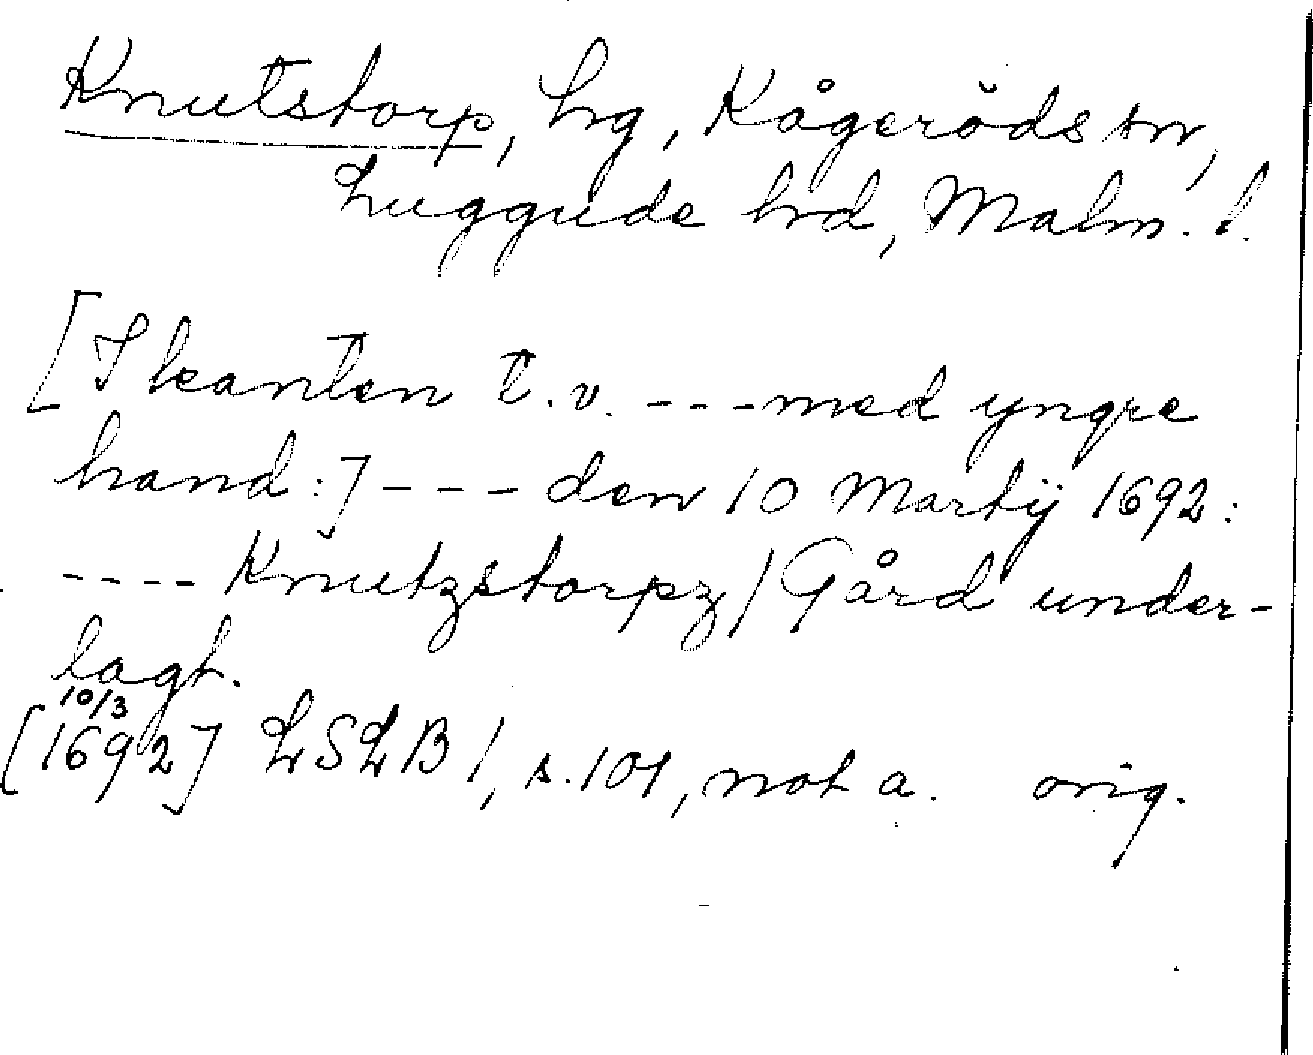 Knutstorp, hg, Kågeröds sn,
Luggude hd, Malm. l.
[I kanten t.v. --- med yngre
hand:] --- den 10 Martij 1692:
---- Knutzstorpz/Gård under-
lagt.
10/3
[1692] LSLB 1, s. 101, not a. orig.